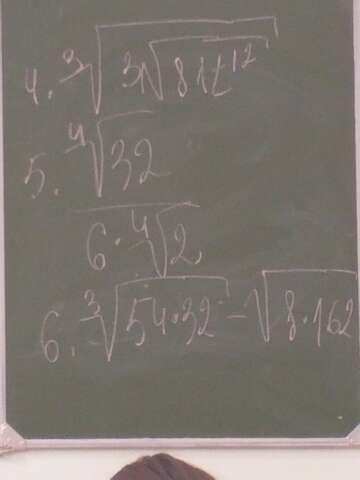 4. ∛(3√(81t¹²))
5. ∜32
6·∜2
6. ∛(54·32) - √(8·162)